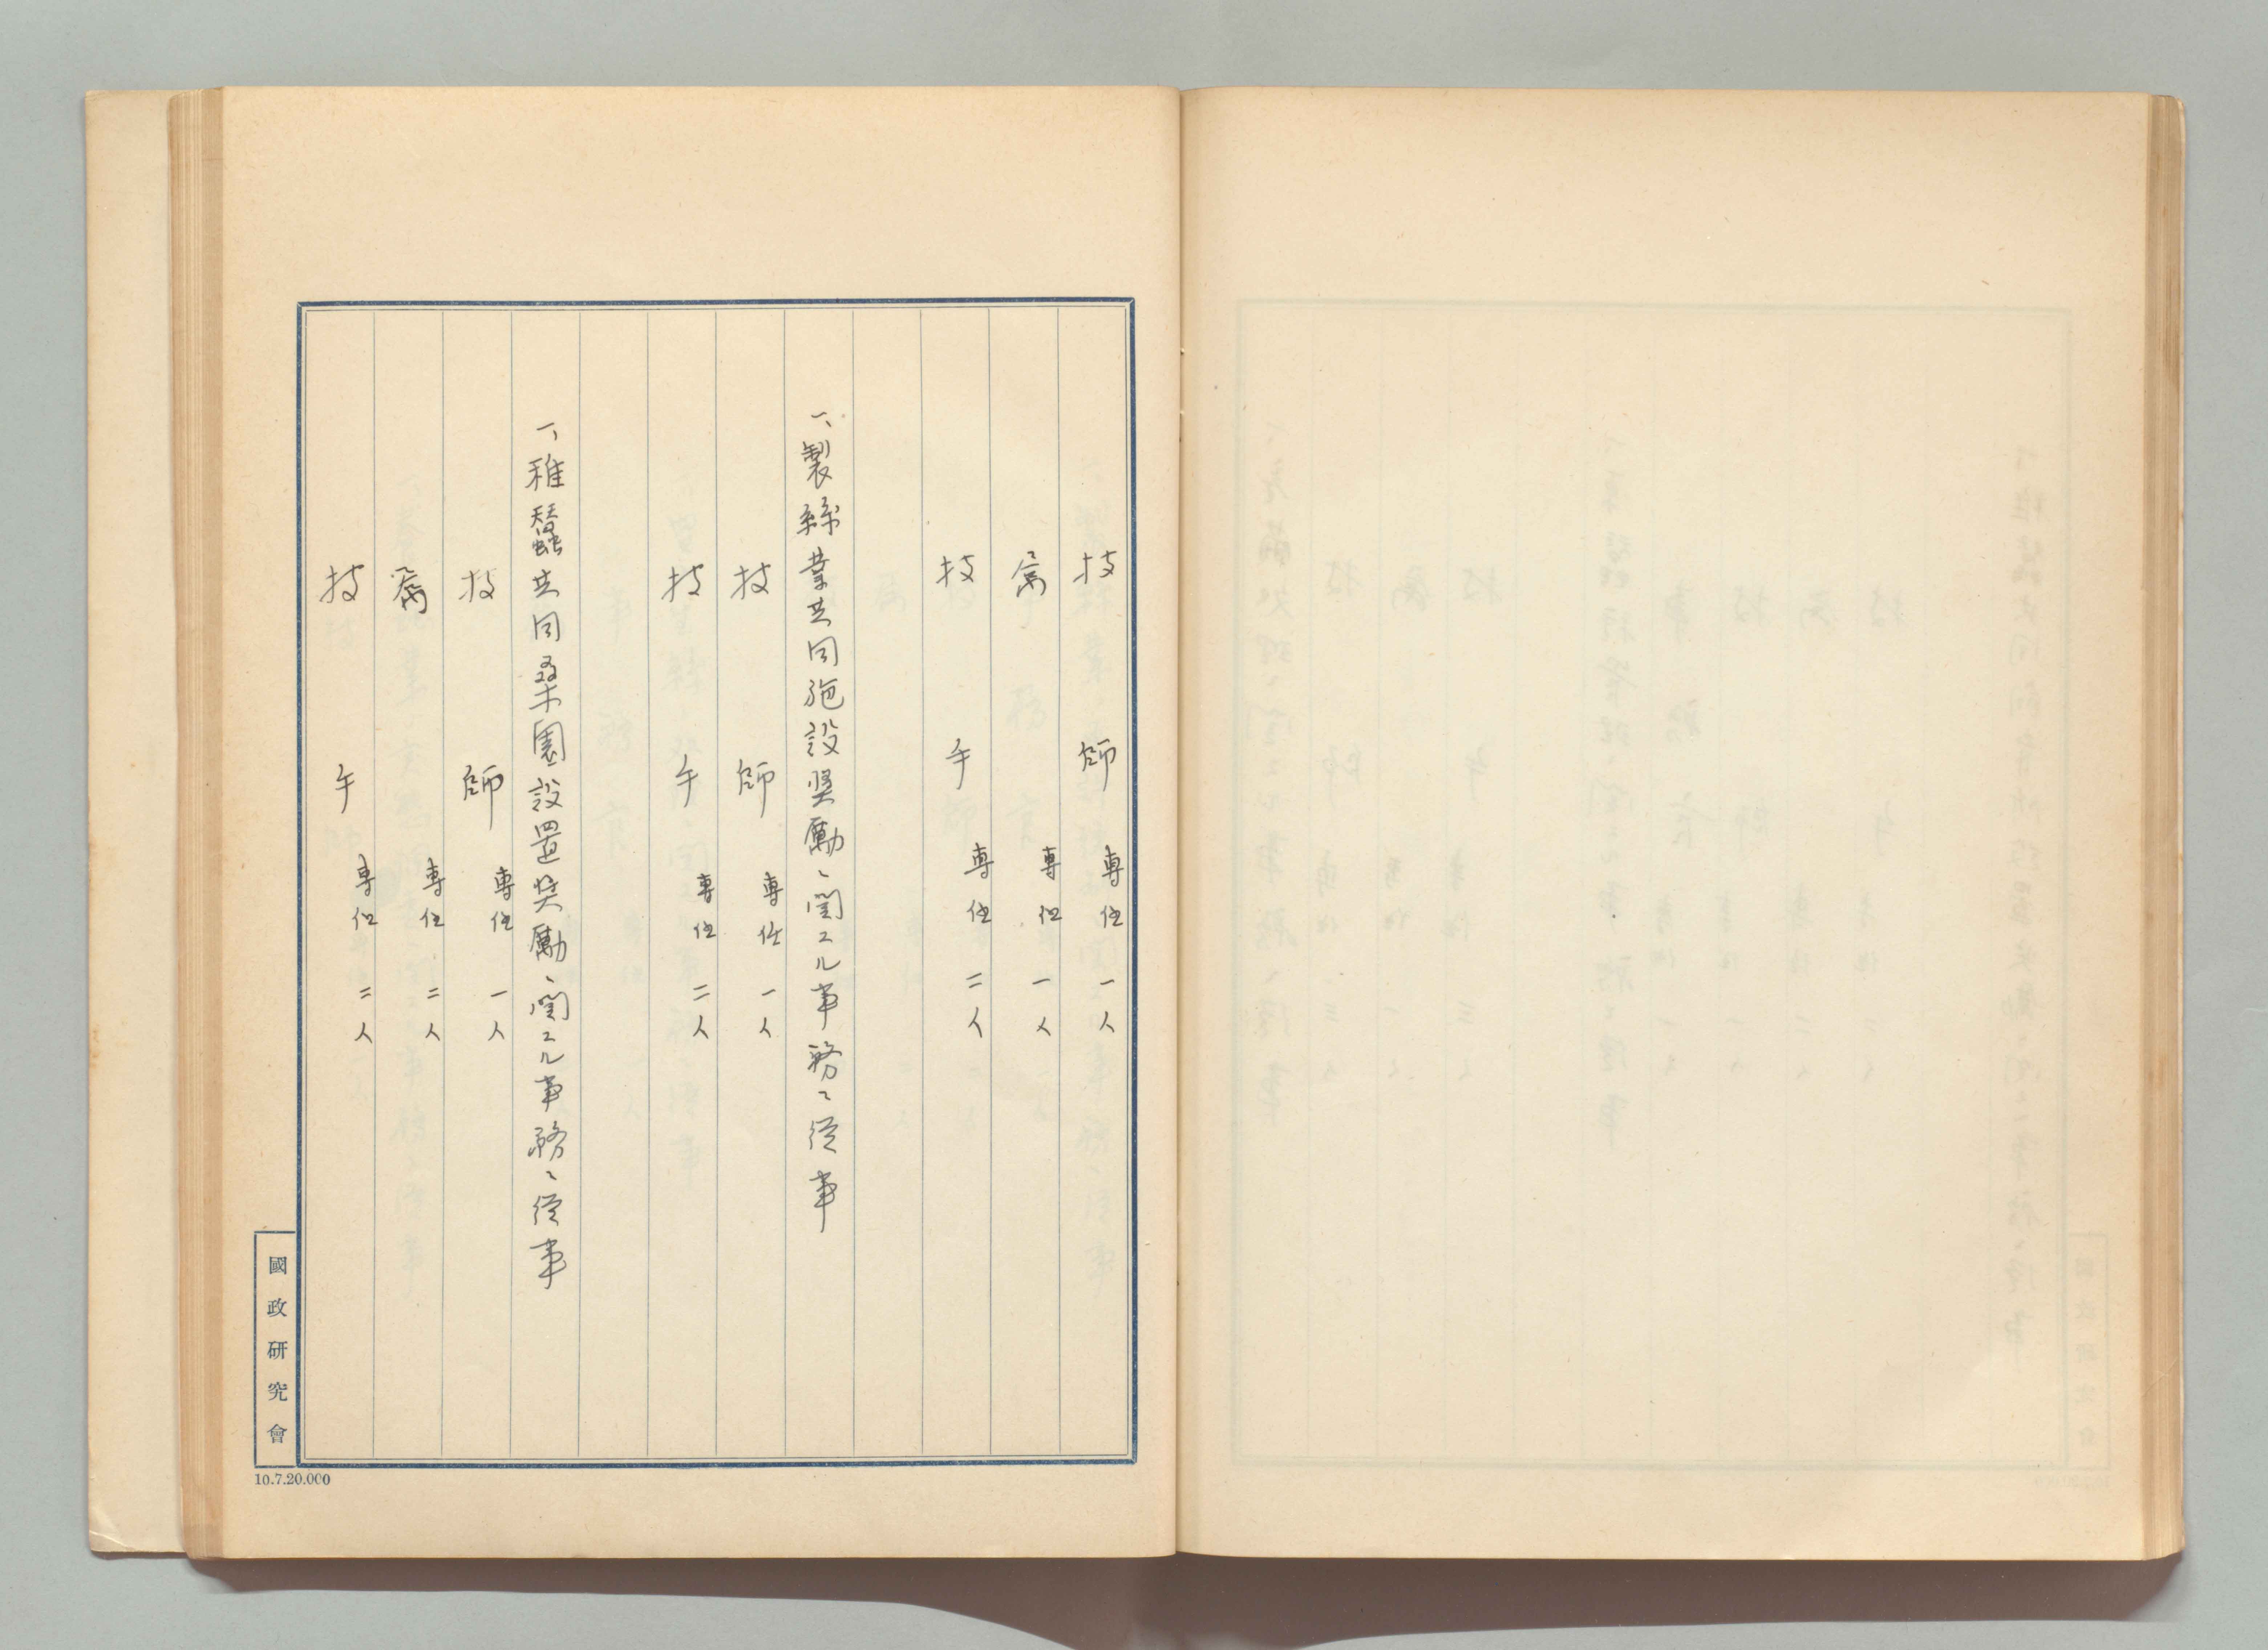 技師 專任 一人
属 專任 一人
技手 專任 二人
一、製絲業共同施設奬勵ニ関スル事務ニ從事
技師 專任 一人
技手 專任 二人
一、稚蠶共同桑園設置奬勵ニ関スル事務ニ從事
技師 專任 一人
属 專任 二人
技手 專任 二人
國政研究會
10.7.20.000